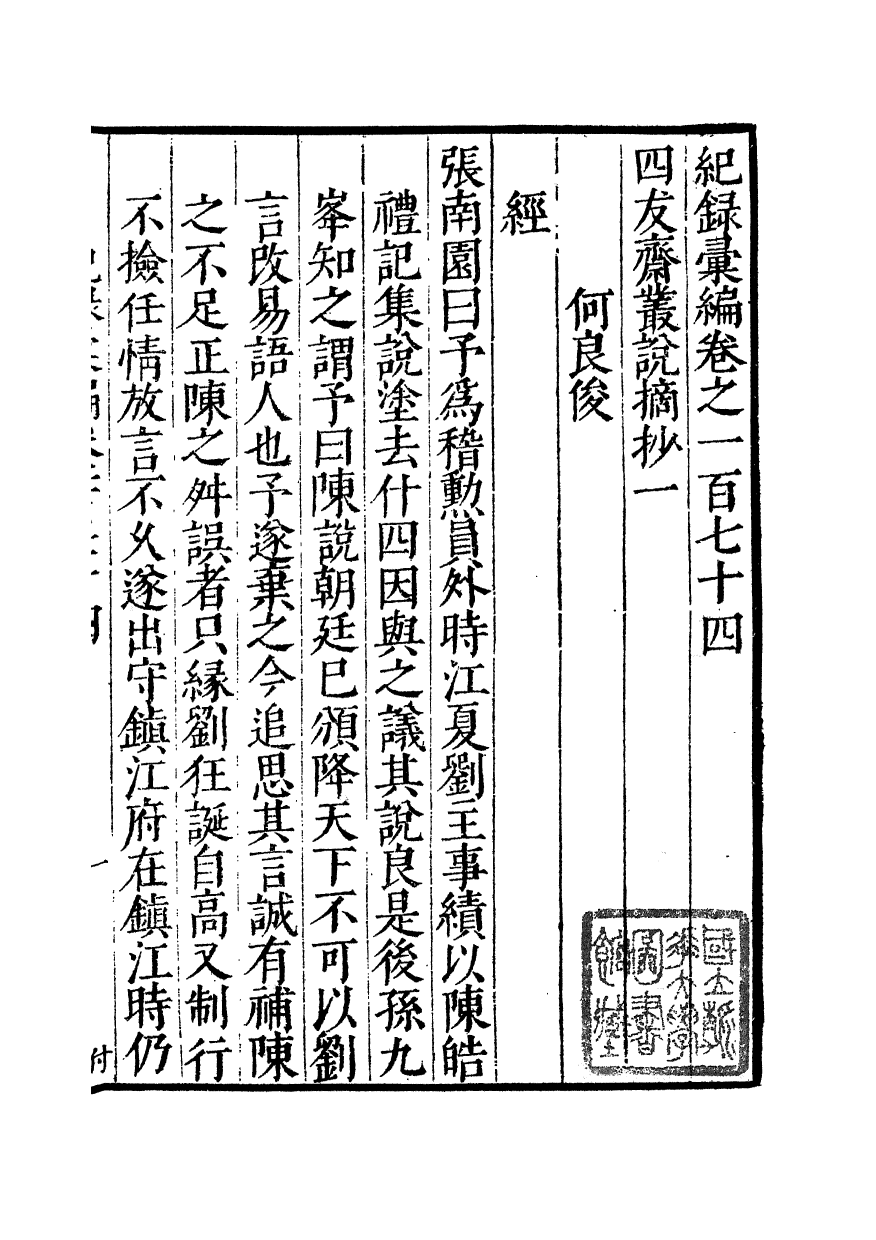 紀録彙編卷之一百七十四
四友齋叢說摘抄一
何良俊
經
張南園曰予爲稽勲員外時江夏劉主事績以陳皓
禮記集說塗去什四因與之議其說良是後孫九
峯知之謂予曰陳說朝廷巳頒降天下不可以劉
言改易語人也予遂棄之今追思其言誠有補陳
之不足正陳之舛誤者只緣劉狂誕自高又制行
不撿任情放言不乆遂出守鎮江府在鎮江時仍
一
付